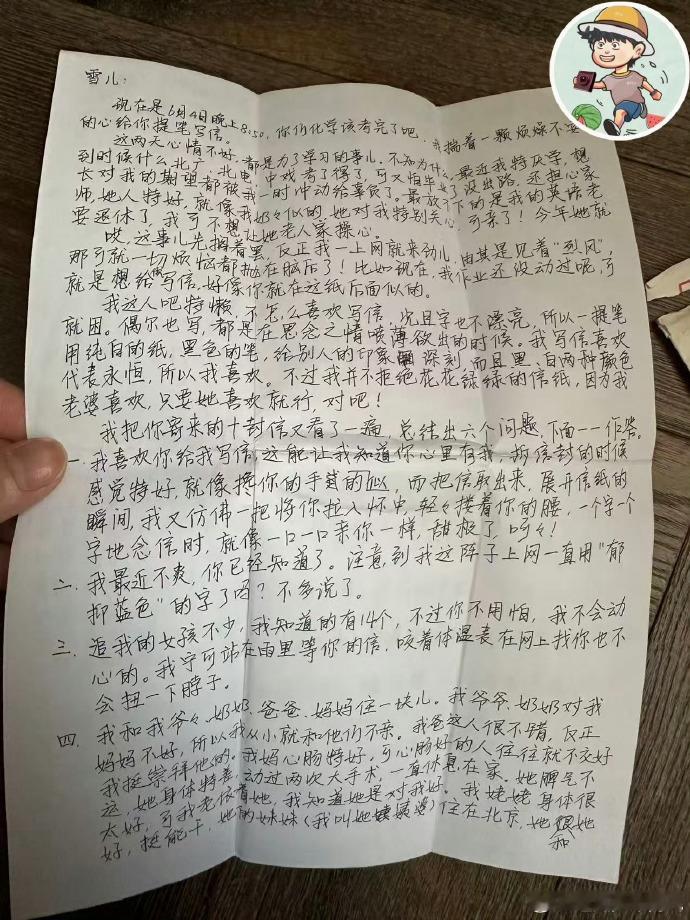 雪儿:
现在是6月4日晚上8:50,你们化学该考完了吧,我揣着一颗烦燥不安
的心给你提笔写信。
这两天心情不好,都是为了学习的事儿。不知为什么,最近我特厌学,想
到时候什么北广、北电、中戏考了得了,可又怕毕业了没出路,还担心家
长对我的期望都被我一时冲动给辜负了。最放不下的是我的英语老
师,她人特好,就像我奶々似的,她对我特别关心,可亲了!今年她就
要退休了,我可不想让她老人家操心。
哎,这事儿先搁着罢,反正我一上网就来劲儿,由其是见着"烈风",
那可就一切烦恼都抛在脑后了!比如现在,我作业还没动过呢,可
就是想给你写信,好像你就在这纸后面似的。
我这人吧特懒,不怎么喜欢写信,况且字也不漂亮,所以一提笔
就困。偶尔也写,都是在思念之情喷薄欲出的时候。我写信喜欢
用纯白的纸,黑色的笔,给别人的印象深刻,而且黑、白两种颜色
代表永恒,所以我喜欢。不过我并不拒绝花花绿绿的信纸,因为我
老婆喜欢,只要她喜欢就行,对吧!
我把你寄来的十封信又看了一遍,总结出六个问题,下面一一作答。
一.我喜欢你给我写信,这能让我知道你心里有我,拆信封的时候
感觉特好,就像搀你的手臂的似,而把信取出来,展开信纸的
瞬间,我又仿佛一把将你拉入怀中,轻々搂着你的腰,一个字一个
字地念信时,就像一口一口亲你一样,甜极了,呵々!
二.我最近不爽,你已经知道了。注意到我这阵子上网一直用"郁
抑蓝色"的字了吗?不多说了。
三.追我的女孩不少,我知道的有14个,不过你不用怕,我不会动
心的。我宁可站在雨里等你的信,咬着体温表在网上找你也不
会扭一下脖子。
四.我和我爷々、奶奶、爸爸、妈妈住一块儿。我爷爷、奶奶对我
妈妈不好,所以我从小就和他们不亲。我爸这人很不错,反正
我挺崇拜他的。我妈心肠特好,可心肠好的人往往就不交好
运,她身体特差,动过两次大手术,一直休息在家。她脾气不
太好,可我老依着她,我知道她是对我好。我姥姥身体很
好,挺能干,她的妹妹(我叫她姨婆)住在北京,她和她